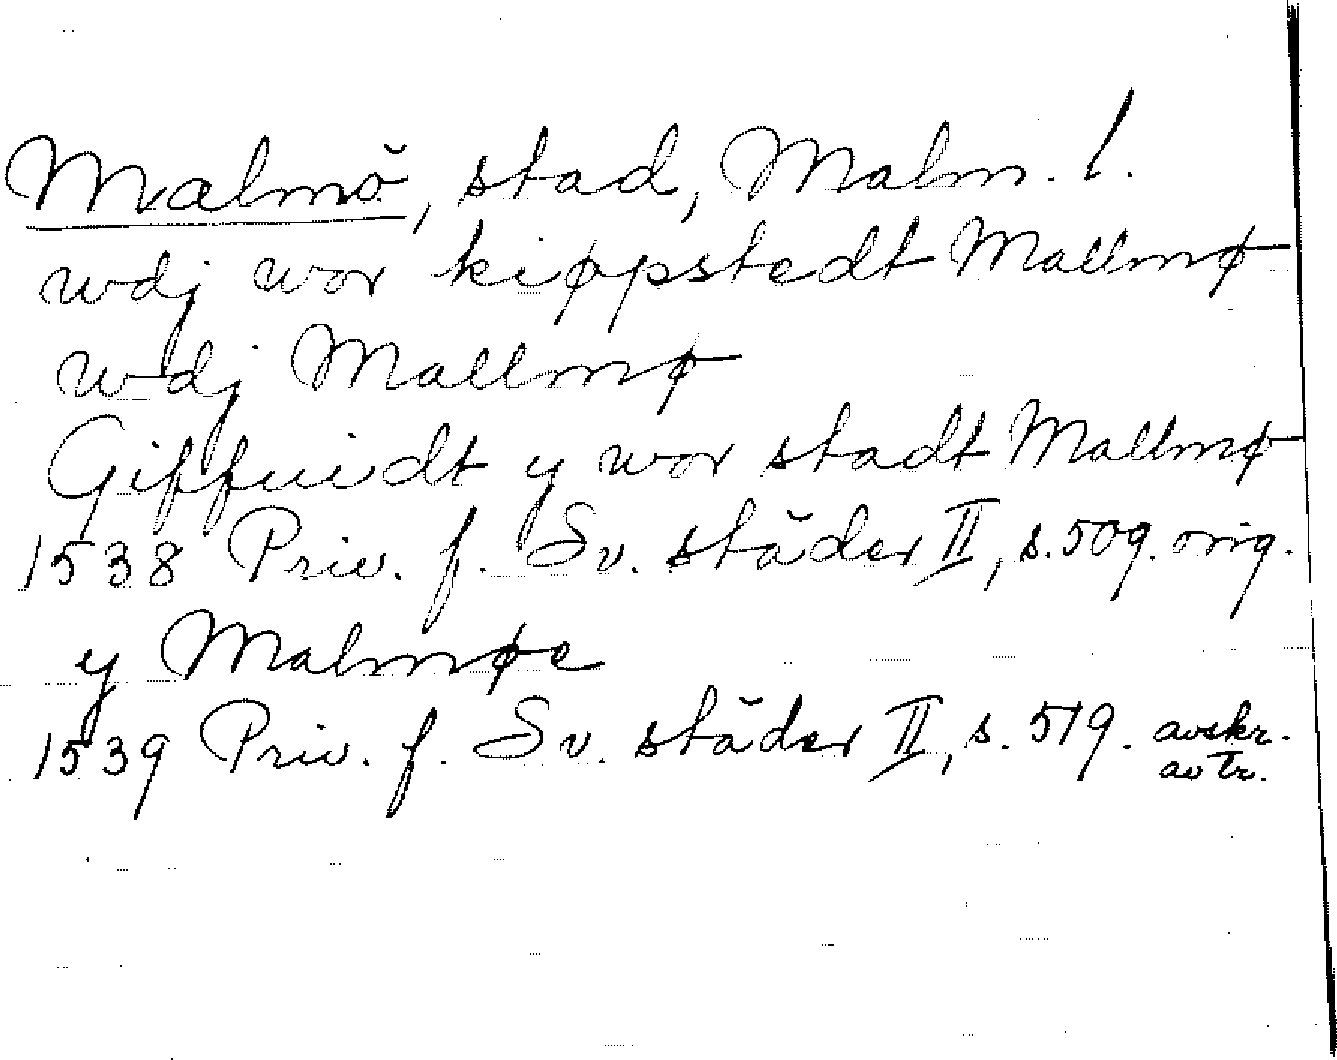 Malmö, stad, Malm. l.
wdj wor kiøpstedt Mallmø
wdj Mallmø
Giffuidt y wor stadt Mallmø
1538 Priv. f. Sv. städer II, s. 509. orig.
y Malmøe
1539 Priv. f. Sv. städer II, s. 519. avskr.
av tr.